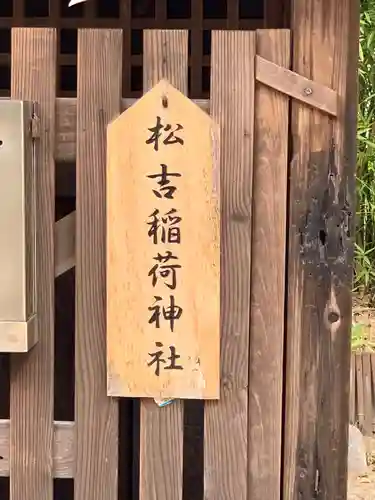 松吉稲荷神社